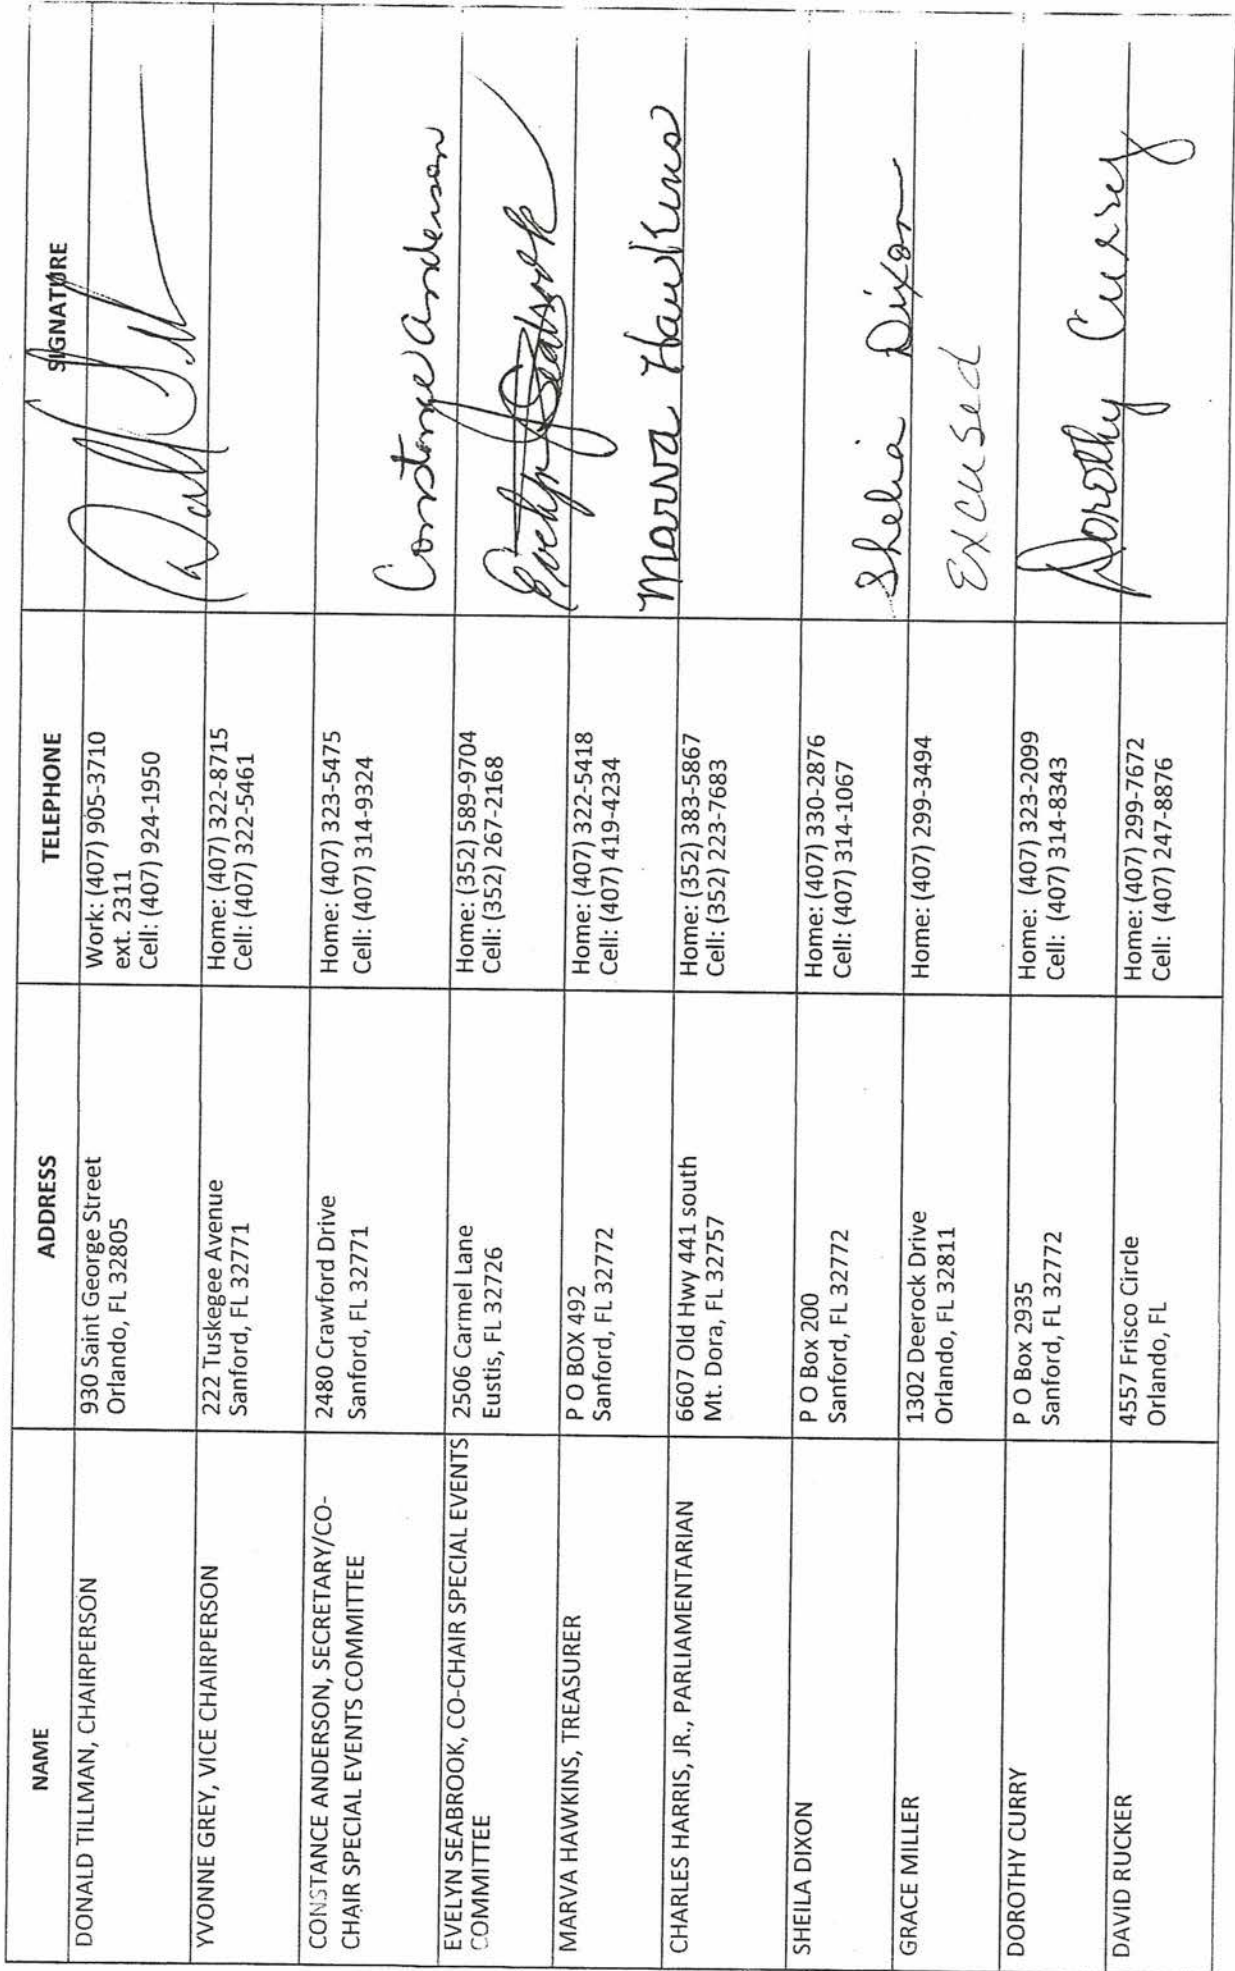 NAME ADDRESS TELEPHONE SIGNATURE
DONALD TILLMAN, CHAIRPERSON
930 Saint George Street
Orlando, FL 32805
Work: (407) 905-3710
ext. 2311
Cell: (407) 924-1950
YVONNE GREY, VICE CHAIRPERSON
222 Tuskegee Avenue
Sanford, FL 32771
Home: (407) 322-8715
Cell: (407) 322-5461
CONSTANCE ANDERSON, SECRETARY/CO-
CHAIR SPECIAL EVENTS COMMITTEE
2480 Crawford Drive
Sanford, FL 32771
Home: (407) 323-5475
Cell: (407) 314-9324
Constance Anderson
EVELYN SEABROOK, CO-CHAIR SPECIAL EVENTS
COMMITTEE
2506 Carmel Lane
Eustis, FL 32726
Home: (352) 589-9704
Cell: (352) 267-2168
Evelyn Seabrook
MARVA HAWKINS, TREASURER
P O BOX 492
Sanford, FL 32772
Home: (407) 322-5418
Cell: (407) 419-4234
Marva Hawkins
CHARLES HARRIS, JR., PARLIAMENTARIAN
6607 Old Hwy 441 south
Mt. Dora, FL 32757
Home: (352) 383-5867
Cell: (352) 223-7683
SHEILA DIXON
P O Box 200
Sanford, FL 32772
Home: (407) 330-2876
Cell: (407) 314-1067
Shelia Dixon
GRACE MILLER
1302 Deerock Drive
Orlando, FL 32811
Home: (407) 299-3494
Excused
DOROTHY CURRY
P O Box 2935
Sanford, FL 32772
Home: (407) 323-2099
Cell: (407) 314-8343
Dorothy Currey
DAVID RUCKER
4557 Frisco Circle
Orlando, FL
Home: (407) 299-7672
Cell: (407) 247-8876